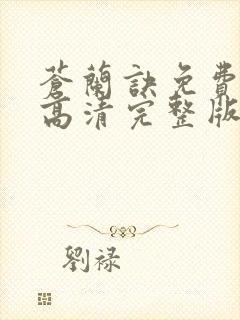 蒼蘭訣免費
高清完整版
劉祿